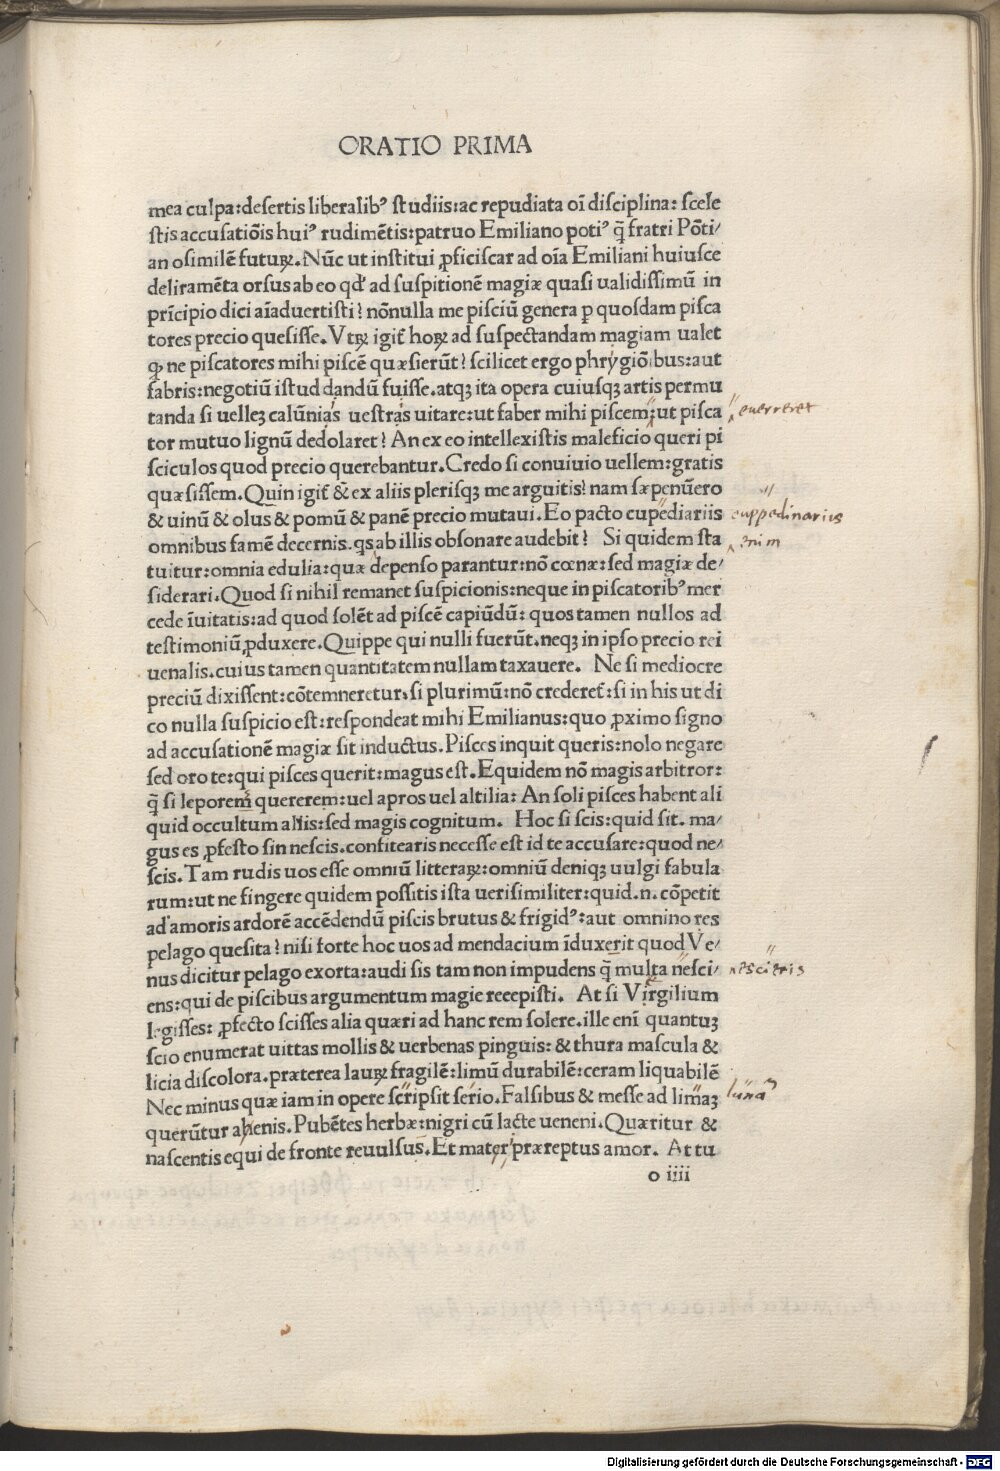 ORATIO PRIMA
mea culpa:desertis liberalibꝰ studiis:ac repudiata oī disciplina: scele
stis accusatiōis huiꝰ rudimētis:patruo Emiliano potiꝰ q̄ fratri Pōti/
an osimilē futuꝝ.Nūc ut institui ꝓficiscar ad oīa Emiliani huiusce
deliramēta orsus ab eo qđ ad suspitionē magiæ quasi ualidissimū in
prīcipio dici aīaduertisti? nōnulla me pisciū genera ꝑ quosdam pisca
tores precio quesisse.Vtꝝ igit̄ hoꝝ ad suspectandam magiam ualet
ꝙ ne piscatores mihi piscē quæsierūt? scilicet ergo phrygiōibus:aut
fabris:negotiū istud dandū fuisse.atqꝫ ita opera cuiusqꝫ artis permu
tanda si uelleꝫ calūnias uestras uitare:ut faber mihi piscem:ut pisca
tor mutuo lignū dedolaret? An ex eo intellexistis maleficio queri pi
sciculos quod precio querebantur.Credo si conuiuio uellem:gratis
quæsissem.Quin igit̄ & ex aliis plerisqꝫ me arguitis? nam sæpenūero
& uinū & olus & pomū & panē precio mutaui.Eo pacto cupediariis
omnibus famē decernis.qs ab illis obsonare audebit? Si quidem sta
tuitur:omnia edulia:quæ depenso parantur:nō cœnæ:sed magiæ de/
siderari.Quod si nihil remanet suspicionis:neque in piscatoribꝰ mer
cede īuitatis:ad quod solēt ad piscē capiūdū: quos tamen nullos ad
testimoniū ꝓduxere.Quippe qui nulli fuerūt.neqꝫ in ipso precio rei
uenalis.cuius tamen quantitatem nullam taxauere. Ne si mediocre
preciū dixissent:cōtemneretur,si plurimū:nō crederet̄:si in his ut di
co nulla suspicio est:respondeat mihi Emilianus:quo ꝓximo signo
ad accusationē magiæ sit inductus.Pisces inquit queris:nolo negare
sed oro te:qui pisces querit:magus est.Equidem nō magis arbitror:
q̄ si leporem quererem:uel apros uel altilia: An soli pisces habent ali
quid occultum aliis:sed magis cognitum. Hoc si scis:quid sit. ma/
gus es ꝓfesto sin nescis.confitearis necesse est id te accusare:quod ne/
scis.Tam rudis uos esse omniū litteraꝝ:omniū deniqꝫ uulgi fabula
rum:ut ne fingere quidem possitis ista uerisimiliter:quid.n.cōpetit
ad amoris ardorē accēdendū piscis brutus & frigidꝰ:aut omnino res
pelago quesita? nisi forte hoc uos ad mendacium īduxerit quod Ve/
nus dicitur pelago exorta:audi sis tam non impudens q̄ multa nesci/
ens:qui de piscibus argumentum magie recepisti. At si Virgilium
legisses: ꝓfecto scisses alia quæri ad hanc rem solere.ille enī quantuꝫ
scio enumerat uittas mollis & uerbenas pinguis: & thura mascula &
licia discolora.præterea lauꝝ fragilē:limū durabilē:ceram liquabilē
Nec minus quæ iam in opere scripsit serio.Falsibus & messe ad limaꝫ
querūtur ahenis.Pubētes herbæ:nigri cū lacte ueneni.Quæritur &
nascentis equi de fronte reuulsus.Et mater præreptus amor. At tu
o iiii
euerreret
cuppedinarius
enim
nescieris
luna
Digitalisierung gefördert durch die Deutsche Forschungsgemeinschaft - DFG